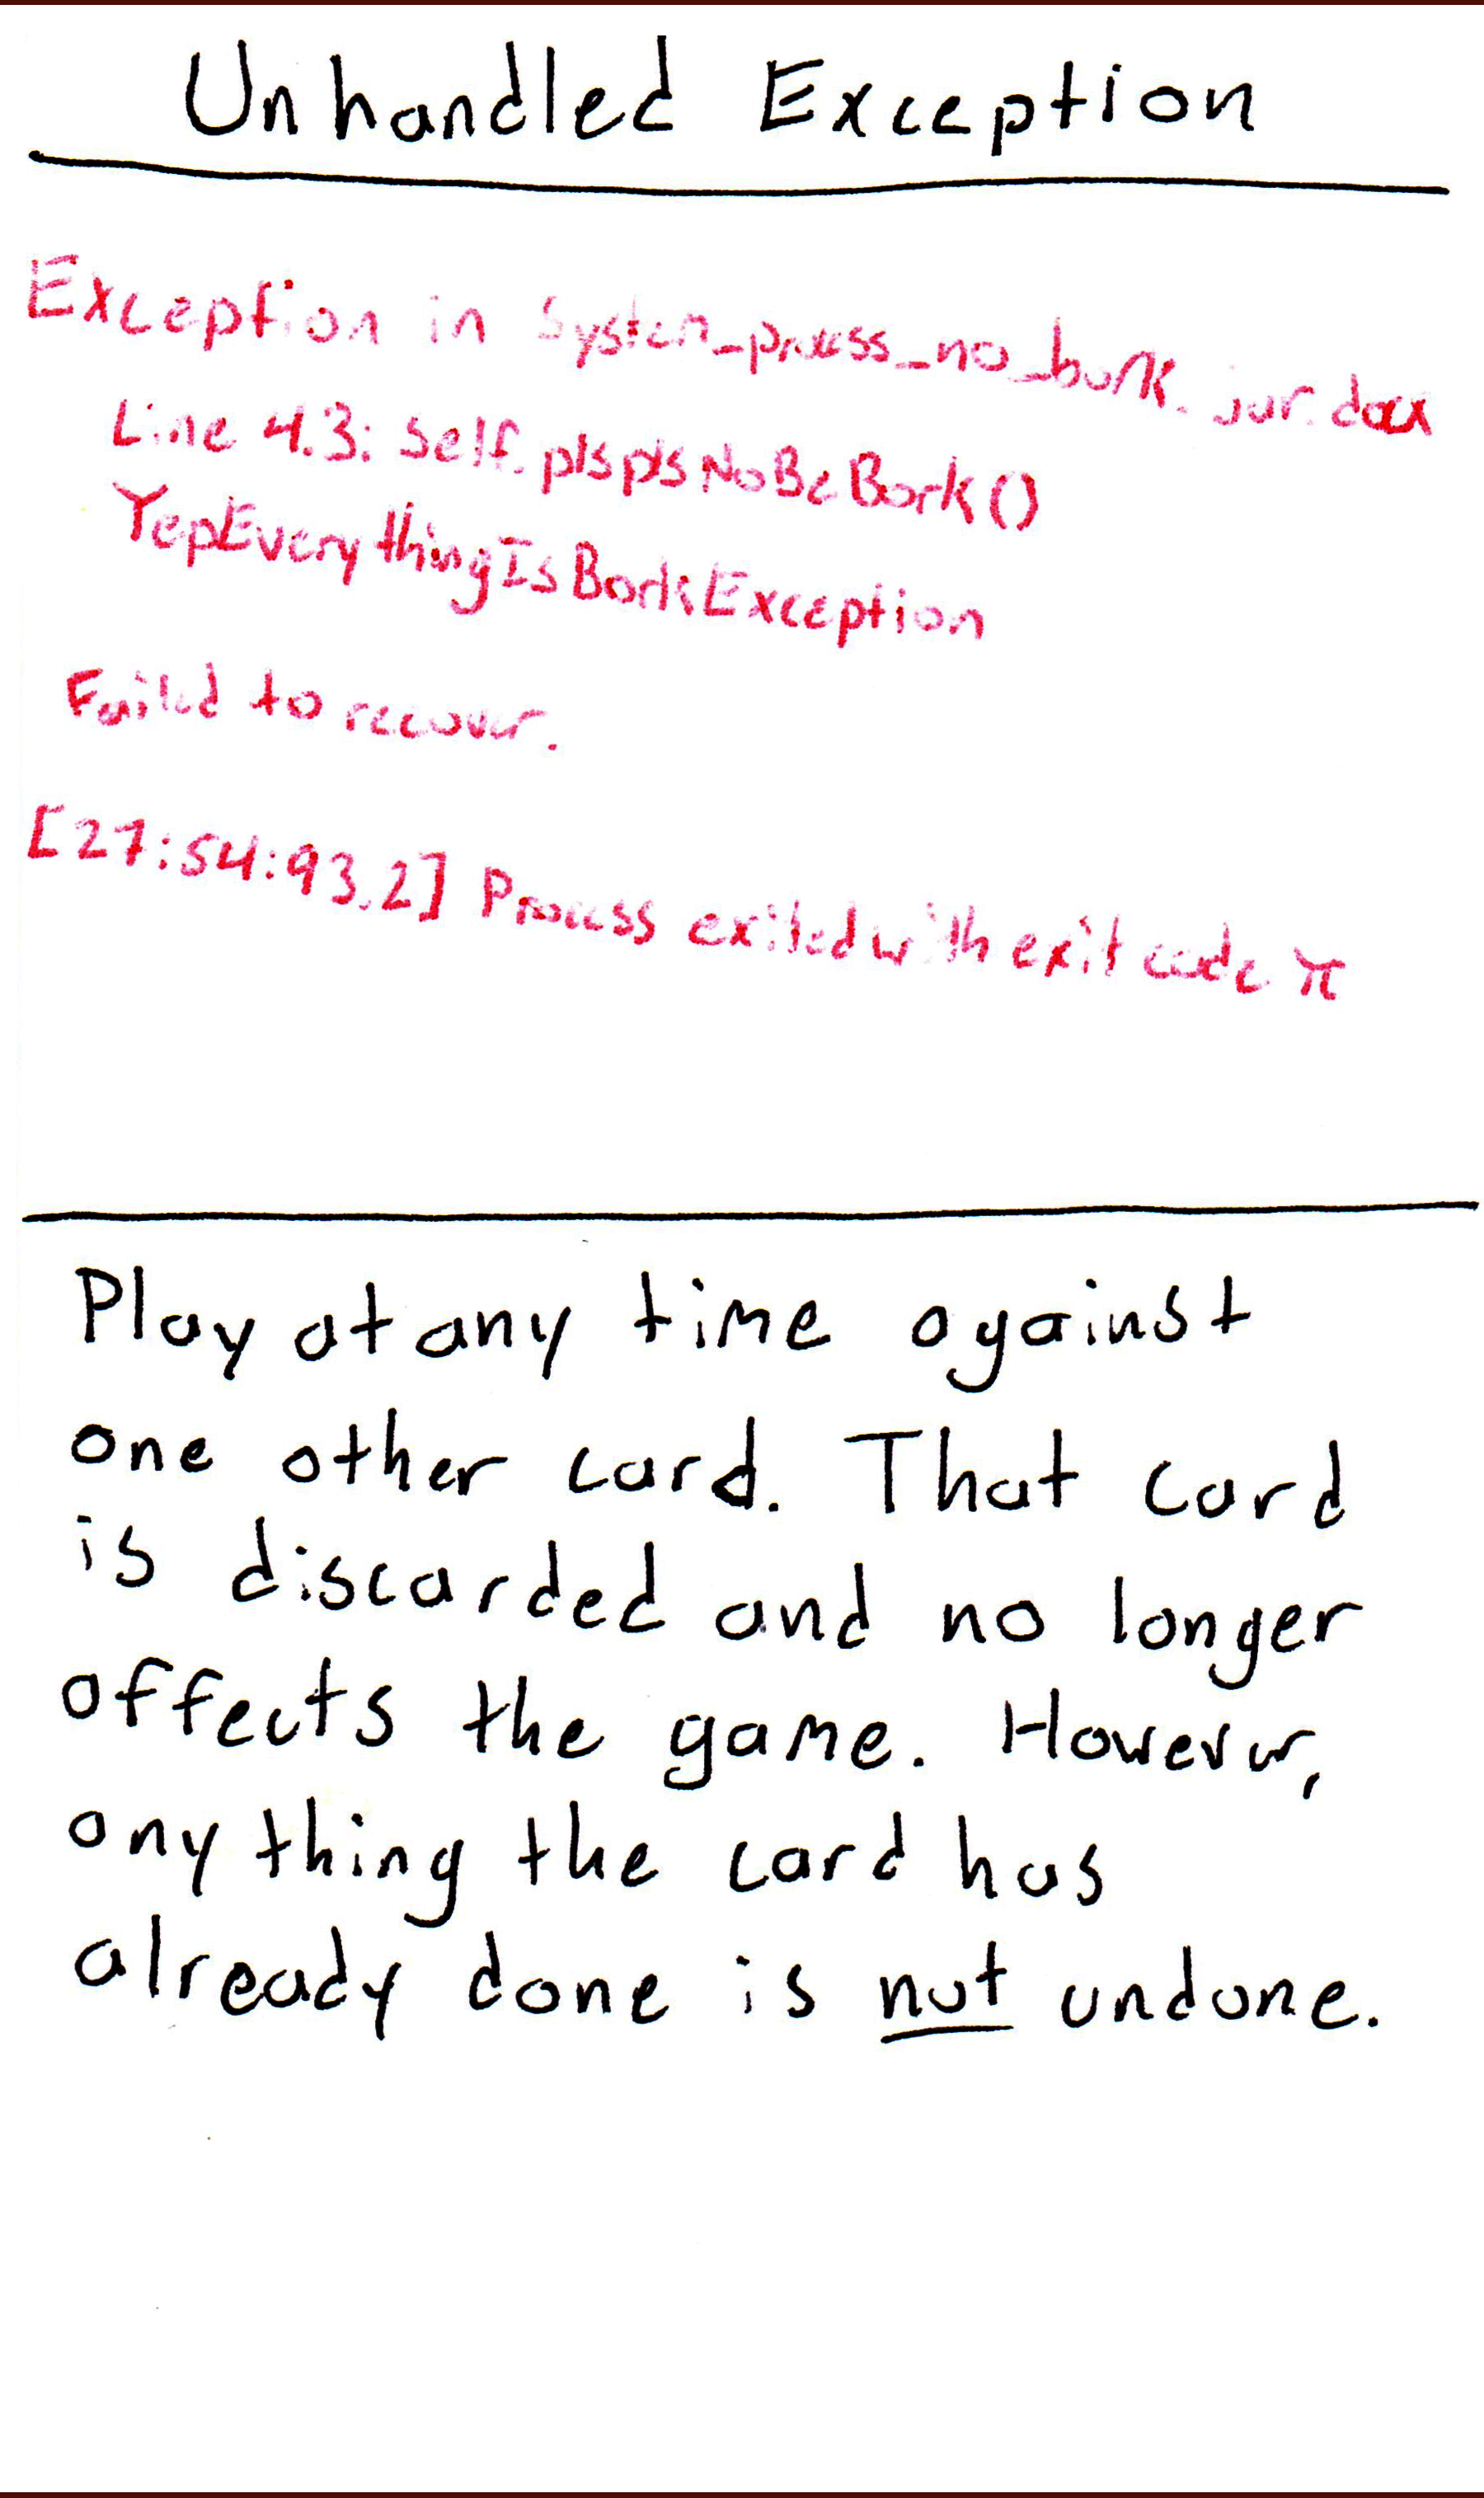 Unhandled Exception
Exception in System_process_no_bork.jar.docx
Line 4.3: Self.plsplsNoBeBork()
YepEverythingIsBorkException
Failed to recover.
[27:54:93.2] Process exited with exit code π
Play at any time against
one other card. That card
is discarded and no longer
affects the game. However,
anything the card has
already done is not undone.